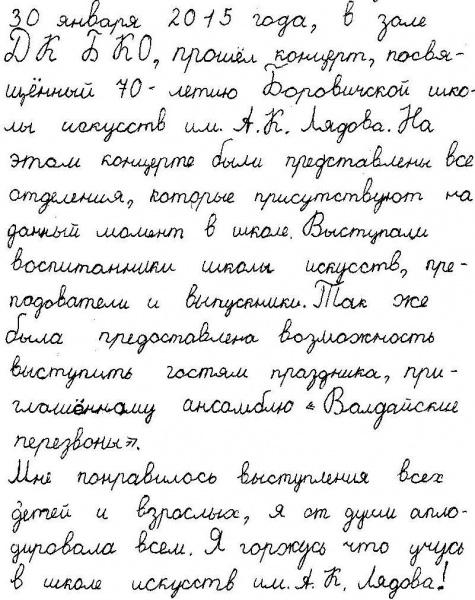 30 января 2015 года, в зале
ДК БКО, прошёл концерт, посвя-
щённый 70-летию Боровичской шко-
лы искусств им. А.К. Лядова. На
этом концерте были представлены все
отделения, которые присутствуют на
данный момент в школе. Выступали
воспитанники школы искусств, пре-
подователи и выпускники. Так же
была предоставлена возможность
выступить гостям праздника, при-
глашённому ансамблю "Валдайские
перезвоны".
Мне понравилось выступления всех
детей и взрослых, я от души апло-
дировала всем. Я горжусь что учусь
в школе искусств им. А. К. Лядова!